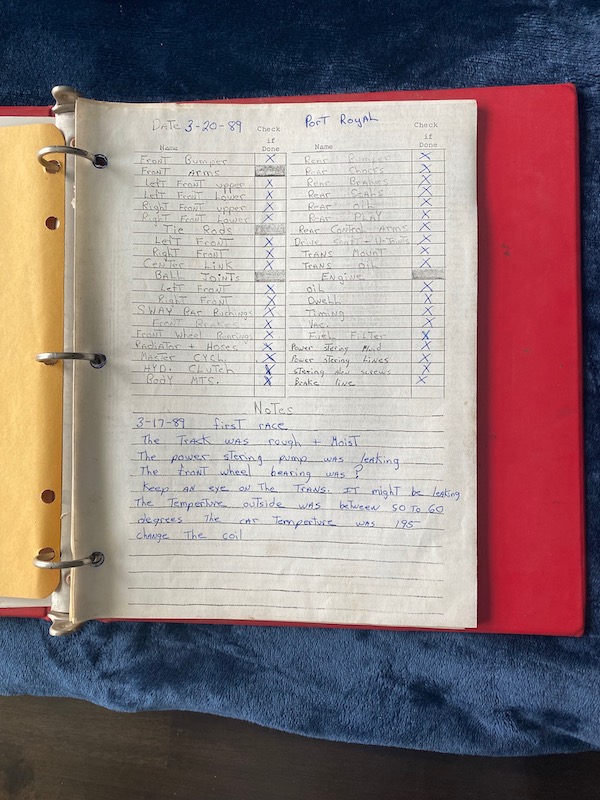 Date 3-20-89 Port Royal
Check if Done
Check if Done
Name
Name
Front Bumper X
Front Arms
Left Front upper X
Left Front Lower X
Right Front upper X
Right Front Lower X
Tie Rods
Left Front X
Right Front X
Center Link X
Ball Joints
Left Front X
Right Front X
Sway Bar Bushings X
Front Brakes X
Front Wheel Bearings X
Radiator + Hoses X
Master Cycl. X
Hyd. Clutch X
Body Mts. X
Rear Bumper X
Rear Shocks X
Rear Brakes X
Rear X
Rear X
Rear Play X
Rear Control Arms X
Drive Shaft + U-Joints X
Trans Mount X
Trans Oil X
Engine
Oil X
Dwell X
Timing X
Vac. X
Fuel Filter X
Power stering fluid X
Power stering Lines X
stering screws X
Brake line X
Notes
3-17-89 first race
The Track was rough + Moist
The power stering pump was leaking
The front wheel bearing was ?
Keep an eye on The Trans. IT might be leaking
The Temperture outside was between 50 To 60
degrees The car Temperture was 195
change The coil